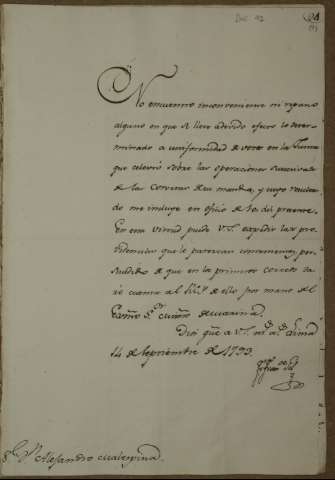 No encuentro inconveniente ni reparo
alguno en que se lleve a devido efecto lo deter-
minado a uniformidad de votos en la Junta
que celevró sobre las operaciones succesivas
de las Corvetas de su mando, y cuyo resulta-
do me incluye en oficio de 10 del presente.
En esta virtud puede V.S. expedir las pro-
videncias que le parezcan convenientes, per-
suadido de que en la primera ocasion da-
ré cuenta al de ello por mano del
Exmõ. S.or de marina.
Dios gũe a V.S. m.s a.s Lima
14 de Septiembre de 1793.
S.r D.n Alejandro Malespina.